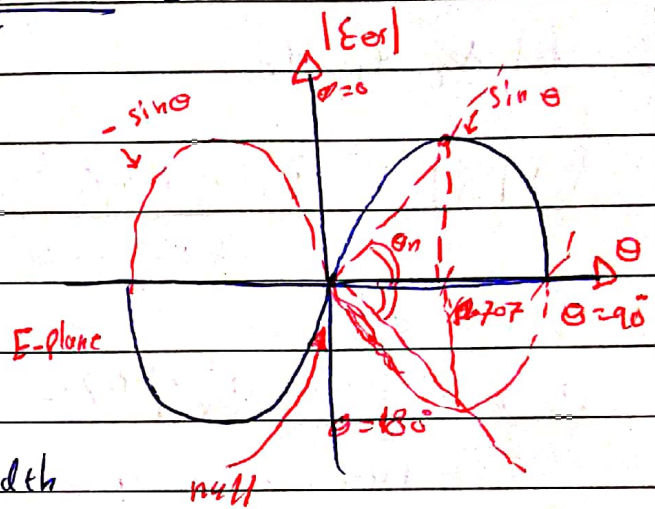 |Eθs|
θ=0
- sinθ
sin θ
θn
θ
0.707
θ=90°
E-plane
θ=180°
dth
null